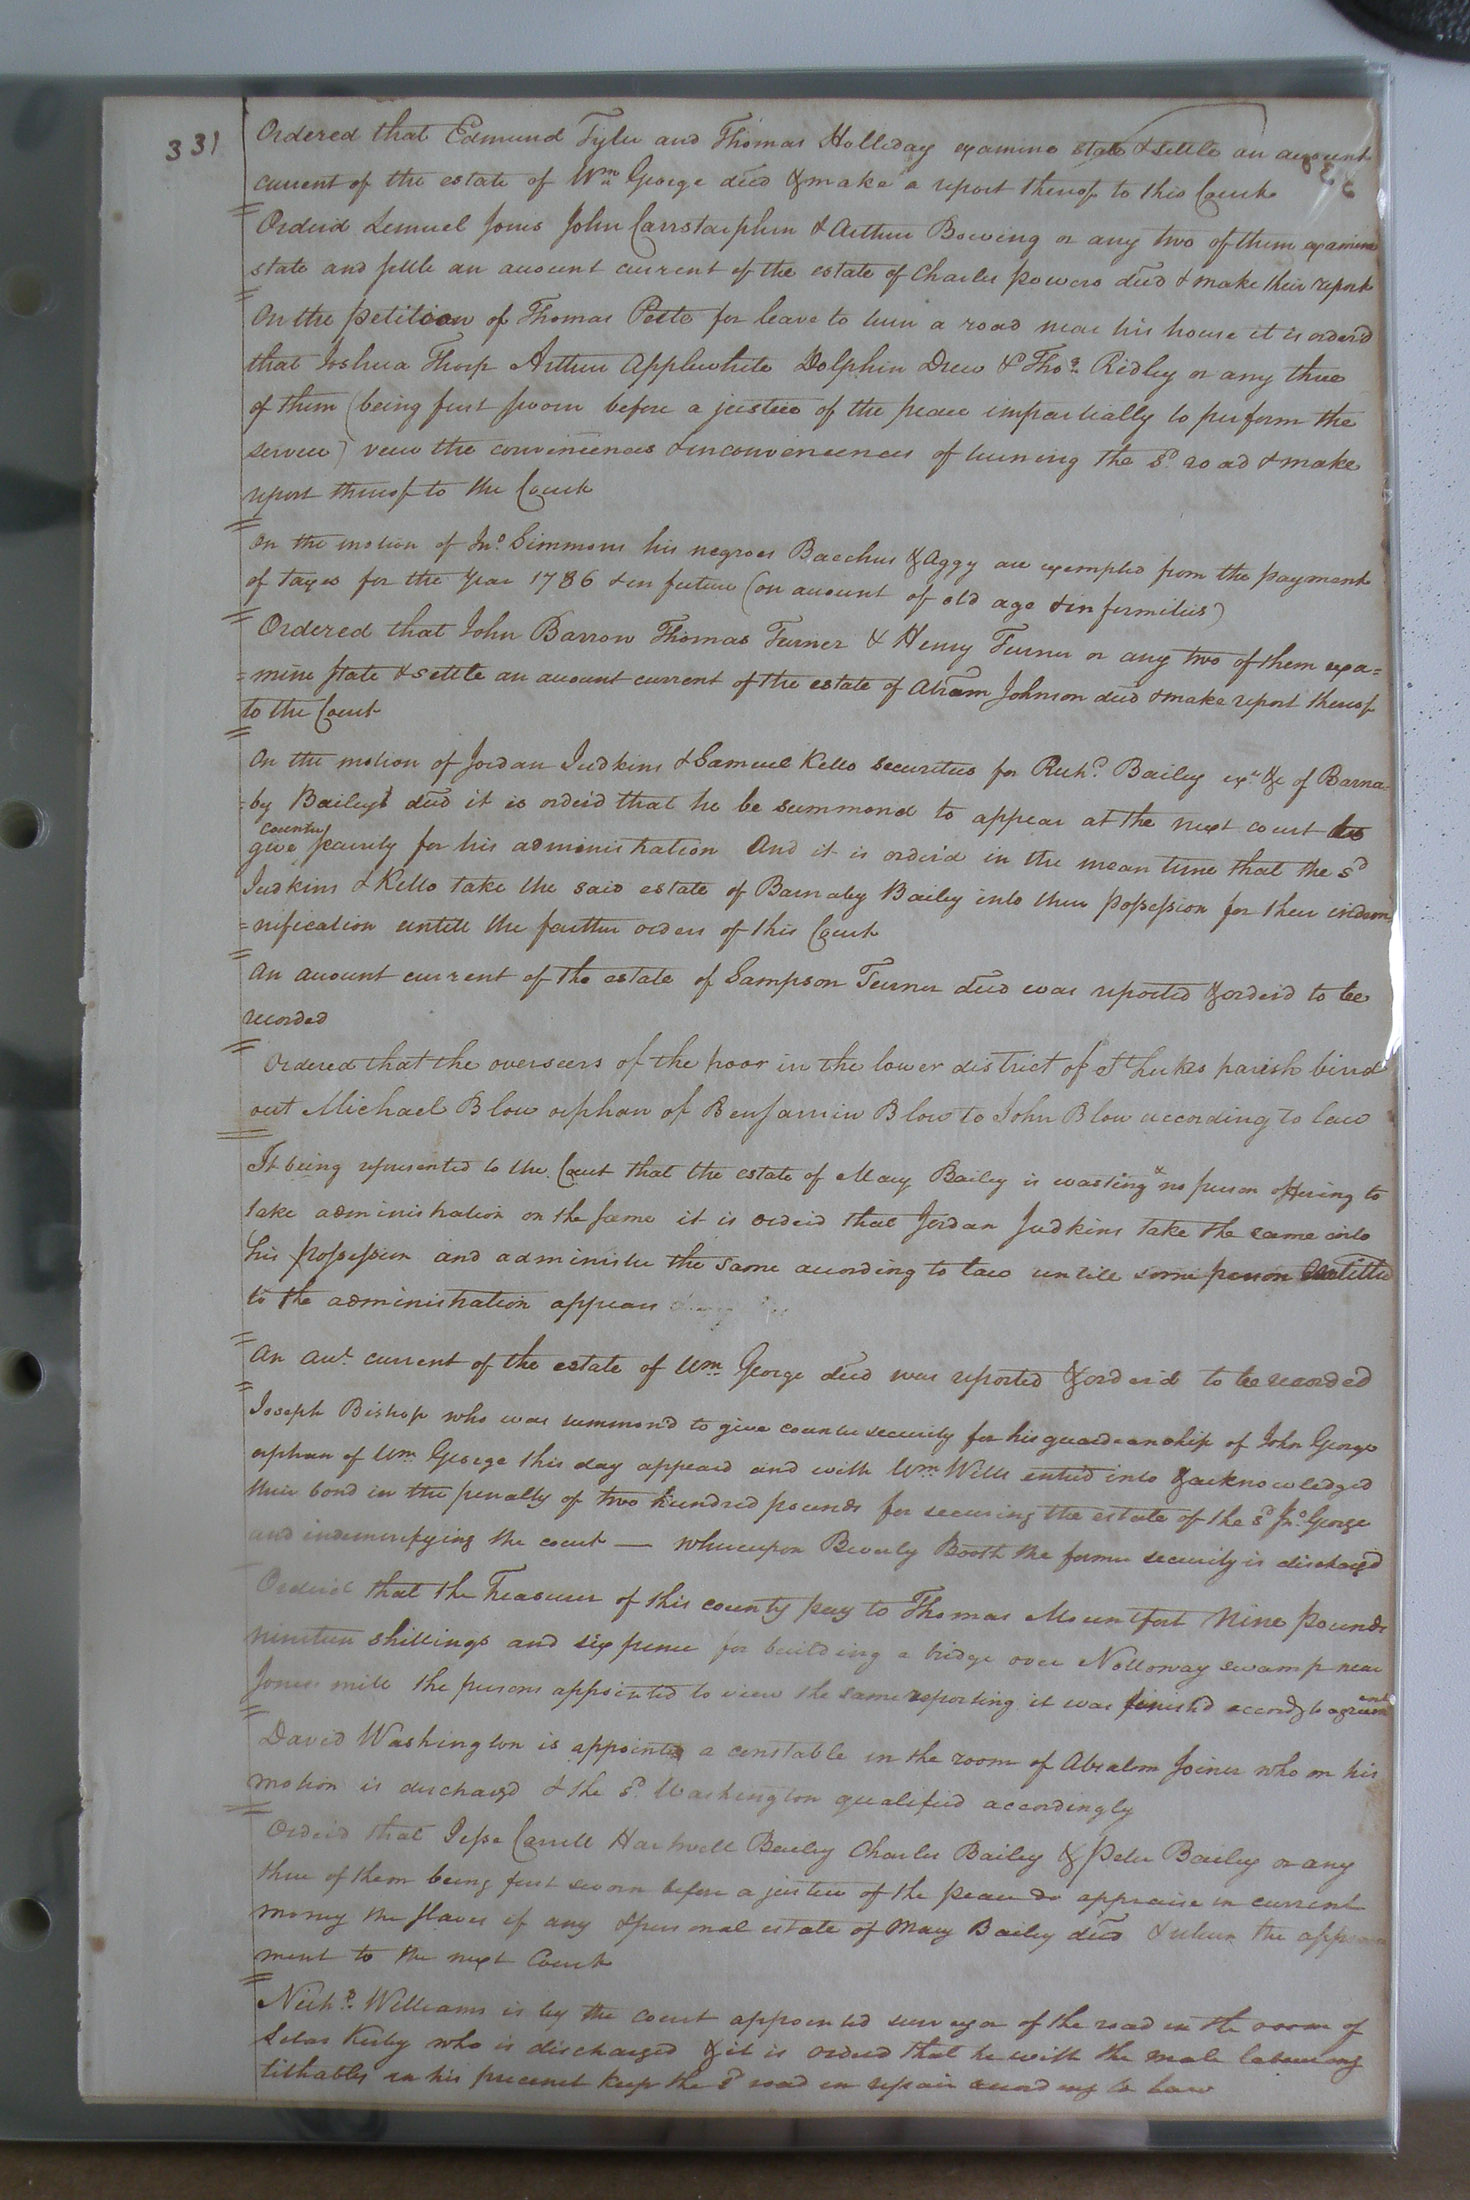 331
Ordered that Edmund Tyler and Thomas Holliday examine state & settle an account
current of the estate of Wm George decd & make a report thereof to this Court
Orderd Lemuel Jones John Carrstarphen & Arthur Bowing or any two of them examine
state and settle an account current of the estate of Charles powers decd & make their report
On the petition of Thomas Pette for leave to turn a road near his house it is orderd
that Joshua Thorp Arthur Applewhite Dolphin Drew & Thos Ridley or any three
of them (being first sworn before a justice of the peace impartially to perform the
service) view the conveniences & inconveniences of turning the sd road & make
report thereof to the Court
On the motion of Jno Simmons his negroes Bacchus & Aggy are exempted from the payment
of taxes for the year 1786 & in future (on account of old age & infirmities)
Ordered that John Barrow Thomas Turner & Henry Turner or any two of them exa=
=mine state & settle an account current of the estate of Abram Johnson decd & make report thereof
to the Court
On the motion of Jordan Judkins & Samuel Kello securities for Richd Bailey exr &c of Barna=
=by Bailey decd it is orderd that he be summond to appear at the next court
give counter security for his administration And it is orderd in the mean time that the sd
Judkins & Kello take the said estate of Barnaby Bailey into their possession for their indem
=nification untill the further orders of this Court
An account current of the estate of Sampson Turner decd was reported & orderd to be
recorded
Ordered that the overseers of the poor in the lower district of St Lukes parish bind
out Michael Blow orphan of Benjamin Blow to John Blow according to law
It being represented to the Court that the estate of Mary Bailey is wasting & no person offering to
take administration on the same it is orderd that Jordan Judkins take the same into
his possession and administer the same according to law untill some person entitled
to the administration appears
An acct current of the estate of Wm George decd was reported & orderd to be recorded
Joseph Bishop who was summond to give counter security for his guardianship of John George
orphan of Wm George this day appeard and with Wm Wills enterd into & acknowledged
their bond in the penalty of two hundred pounds for securing the estate of the sd Jno George
and indemnifying the court — whereupon Beverly Booth the former security is dischargd
Orderd that the Treasurer of this county pay to Thomas Mountfort Nine pounds
nineteen shillings and six pence for building a bridge over Nottoway swamp near
Jones's mill the persons appointed to view the same reporting it was finishd accordg to agreement
David Washington is appointed a constable in the room of Absalom Joiner who on his
motion is dischargd & the sd Washington qualified accordingly
Orderd that Jesse Carrell Hartwell Bailey Charles Bailey & Peter Bailey or any
three of them being first sworn before a justice of the peace do appraise in current
money the slaves if any & personal estate of Mary Bailey decd & return the appraise
ment to the next Court
Nichs Williams is by the court appointed surveyor of the road in the room of
Silas Kirby who is discharged & it is orderd that he with the male labouring
tithables in his precinct keep the sd road in repair according to law